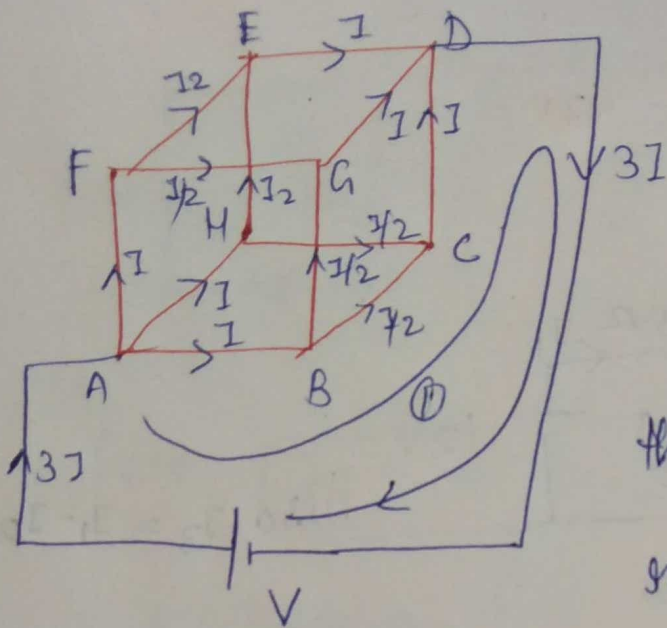 E I D
I2 I I
F I/2 G 3I
H I2 I/2 C
I I I/2 I/2
A I B
①
3I
V